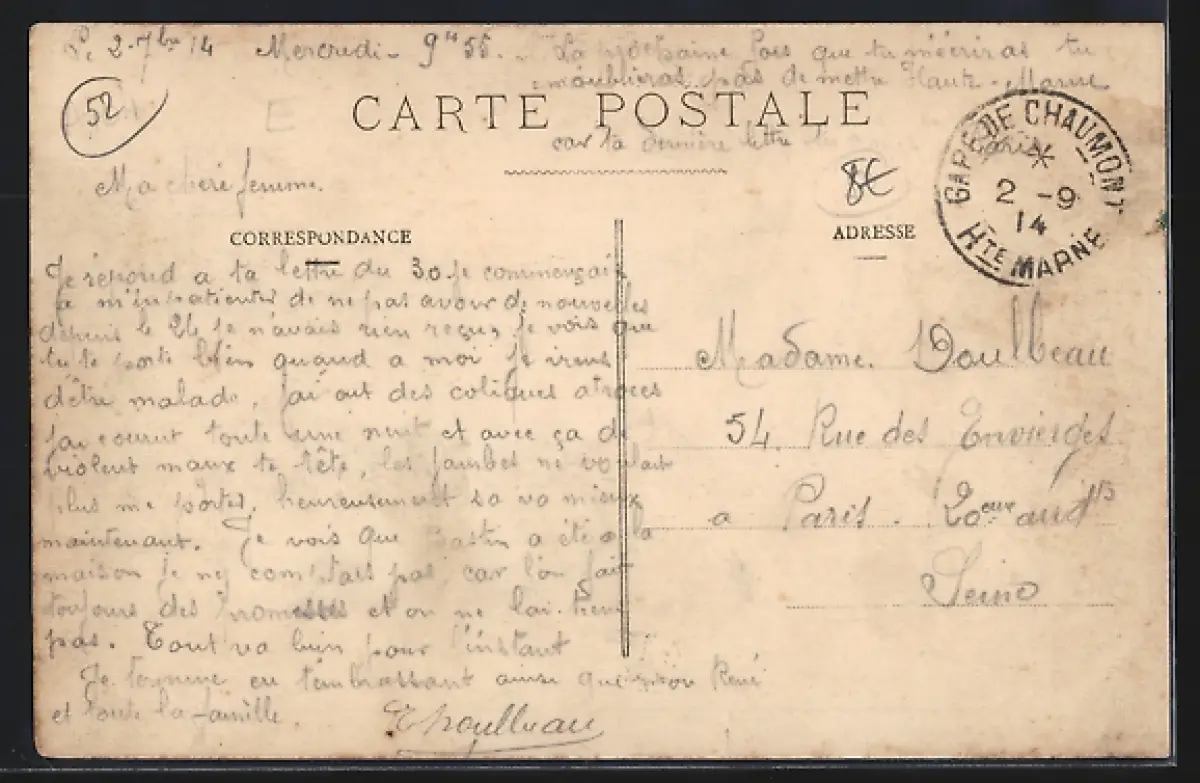 Le 2-7bre 14 Mercredi - 9h55. - La prochaine fois que tu m'écriras tu
m'oublieras pas de mettre Haute-Marne
52
CARTE POSTALE
car ta dernière lettre
Paris
8€
GARE DE CHAUMONT
2 -9
14
HTE MARNE
Ma chere femme.
CORRESPONDANCE
ADRESSE
Je répond a ta lettre du 30. Je commençait
a m'impatienter de ne pas avoir de nouvelles
depuis le 24 je n'avais rien reçu, je vois que
tu te porte bien quand a moi je viens
d'être malade, j'ai eut des coliques atroces
j'ai courut toute une nuit et avec ça de
violent maux te tête, les jambes ne voulait
plus me porter, heureusement sa va mieux
maintenant. Je vois que Bastin a été a la
maison je ny comptais pas, car l'on fait
toujours des promesses et on ne lai tien
pas. Tout va bien pour l'instant
Je termine en t'embrassant ainsi que mon René
et toute la famille.
Madame. Doulbeau
54. Rue des Envierges
a Paris. 20eme
Seine